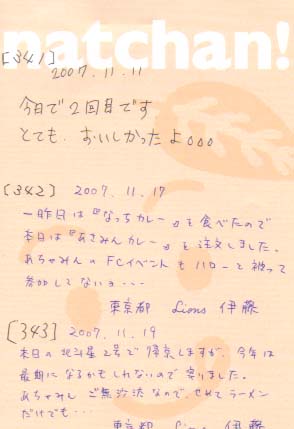 natchan!
[341]
2007.11.11
今日で2回目です
とても、おいしかったよ。。。
[342] 2007.11.17
一昨日は『なっちカレー』を食べたので
本日は『あさみんカレー』を注文しました。
あちゃみんのFCイベントもハローと被って
参加してないョ・・・
東京都 Lions 伊藤
[343] 2007.11.19
本日の北斗星2号で帰京しますが、今年は
最期になるかもしれないので寄りました。
あちゃみん ご無沙汰なので、せめてラーメン
だけでも・・・
東京都 Lions 伊藤